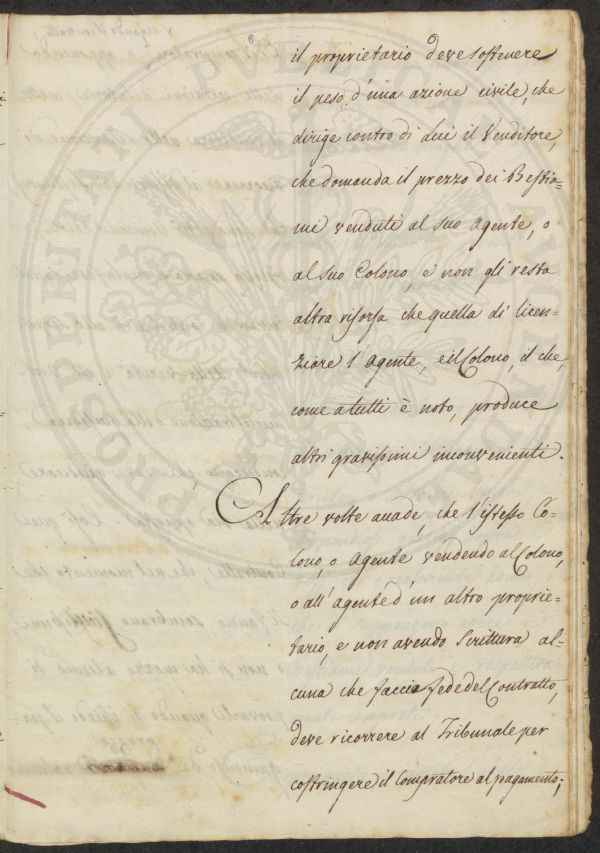 6
il proprietario deve sostenere
il peso d'una azione civile, che
dirige contro di lui il Venditore,
che domanda il prezzo dei Bestia=
mi venduti al suo Agente, o
al suo Colono, e non gli resta
altra risorsa che quella di licen=
ziare l'Agente, e il Colono, il che,
come a tutti è noto, produce
altri gravissimi inconvenienti.
Altre volte accade, che l'istesso Co=
lono, o Agente vendendo al Colono,
o all'agente d'un altro proprie=
tario, e non avendo Scrittura al=
cuna che faccia fede del Contratto,
deve ricorrere al Tribunale per
costringere il Compratore al pagamento;